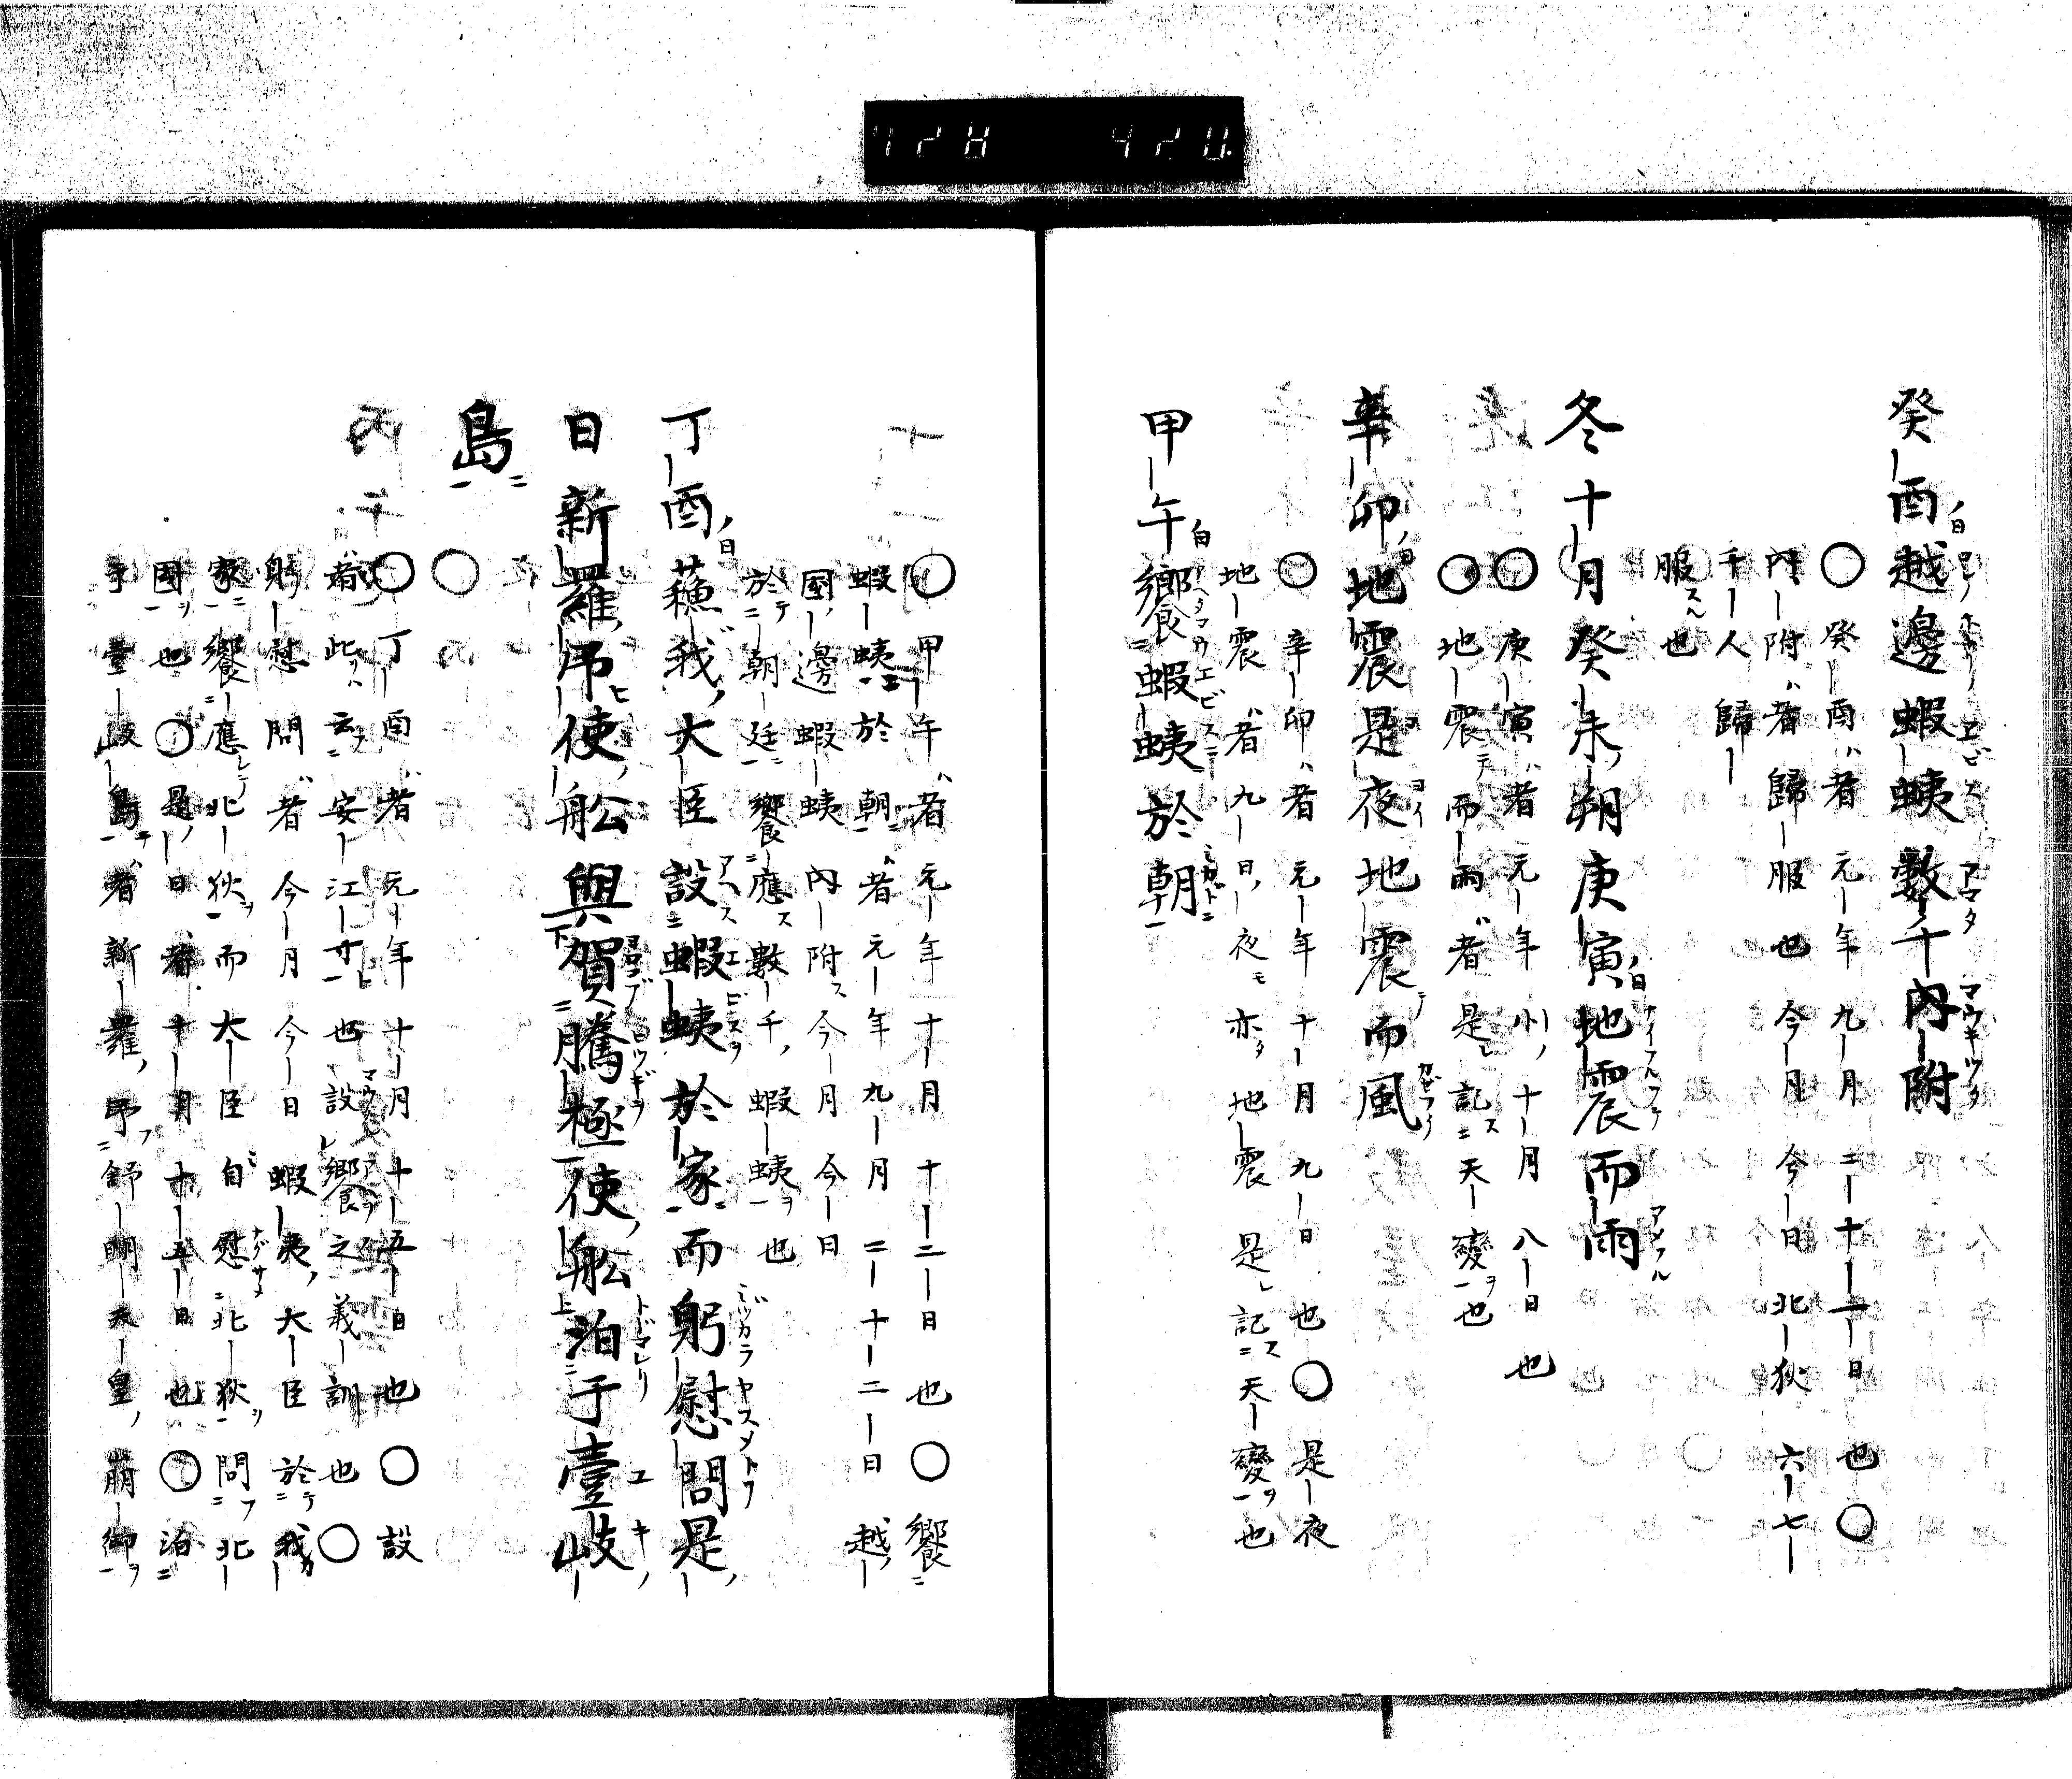 癸酉越邊蝦蛦數千內附
○癸酉者元年九月二十一日也○
內附者歸服也今月今日北狄六七
千人歸
服也
冬十月癸未朔庚寅地震而雨
○庚寅者元年小十月八日也
○地震而雨者是記天變也
辛卯地震是夜地震而風
○辛卯者元年十月九日也○是夜
地震者九日夜亦地震是記天變也
甲午饗蝦蛦於朝
○甲午者元年十月十二日也○饗
蝦蛦於朝者元年九月二十二日越
國邊蝦蛦內附今月今日
於朝廷饗應數千蝦蛦也
丁酉蘓我大臣設蝦蛦於家而躬慰問是
日新羅吊使舩與賀騰極使舩泊于壹岐
島
○丁酉者元年十月十五日也○設
者此云安江寸也設饗之義訓也○
躬慰問者今月今日蝦夷大臣於我
家饗應北狄而大臣自慰北狄問北
國也○是日者十月十五日也○泊
于壹岐島者新羅吊舒明天皇崩御